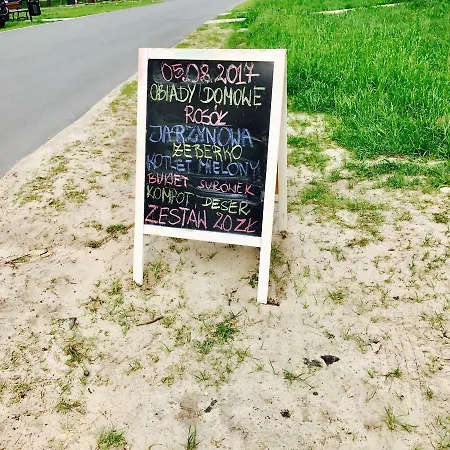 05.08.2017
OBIADY DOMOWE
ROSÓŁ
JARZYNOWA
ŻEBERKO
KOTLET MIELONY
BUKIET SURÓWEK
KOMPOT, DESER
ZESTAW 20 ZŁ